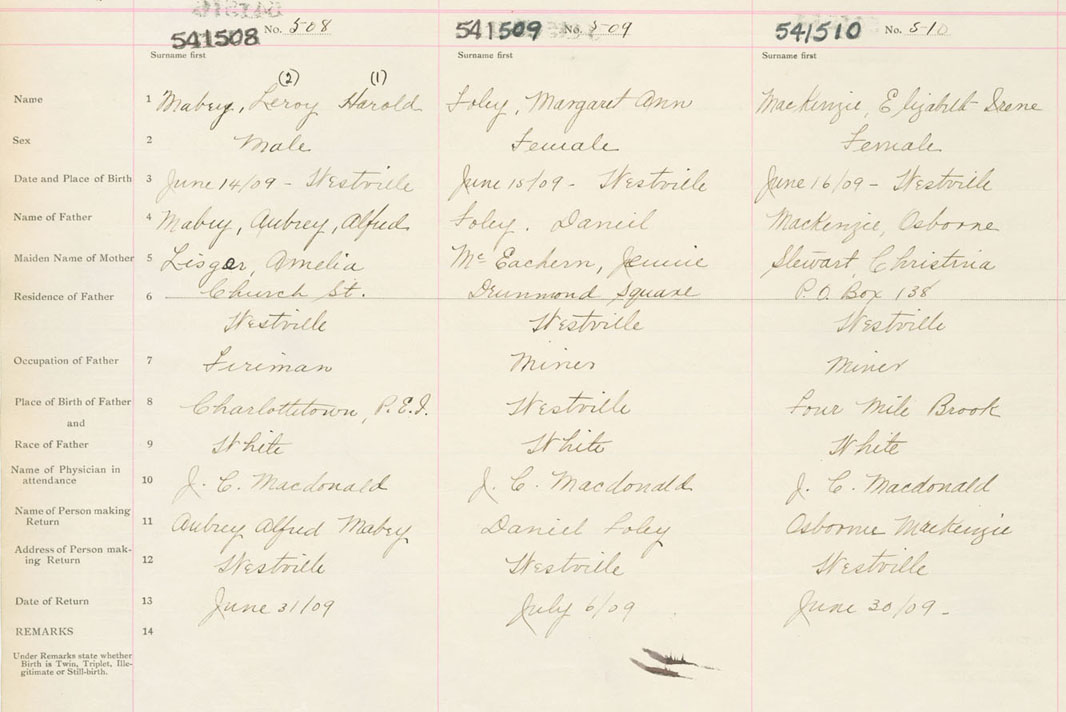 541508 No. 508 541509 No. 509 541510 No. 510
Surname first Surname first Surname first
(2) (1)
Name 1 Mabey, Leroy Harold Foley, Margaret Ann MacKenzie, Elizabeth Irene
Sex 2 Male Female Female
Date and Place of Birth 3 June 14/09 - Westville June 15/09 - Westville June 16/09 - Westville
Name of Father 4 Mabey, Aubrey, Alfred Foley, Daniel MacKenzie, Osborne
Maiden Name of Mother 5 Lisgar, Amelia McEachern, Jennie Stewart, Christina
Residence of Father 6 Church St. Drummond Square P.O. Box 138
Westville Westville Westville
Occupation of Father 7 Firiman Miner Miner
Place of Birth of Father 8 Charlottetown, P.E.I. Westville Four Mile Brook
and
Race of Father 9 White White White
Name of Physician in
attendance 10 J. C. Macdonald J. C. Macdonald J. C. Macdonald
Name of Person making
Return 11 Aubrey Alfred Mabey Daniel Foley Osborne MacKenzie
Address of Person mak-
ing Return 12 Westville Westville Westville
Date of Return 13 June 31/09 July 6/09 June 30/09-
REMARKS 14
Under Remarks state whether
Birth is Twin, Triplet, Ille-
gitimate or Still-birth.